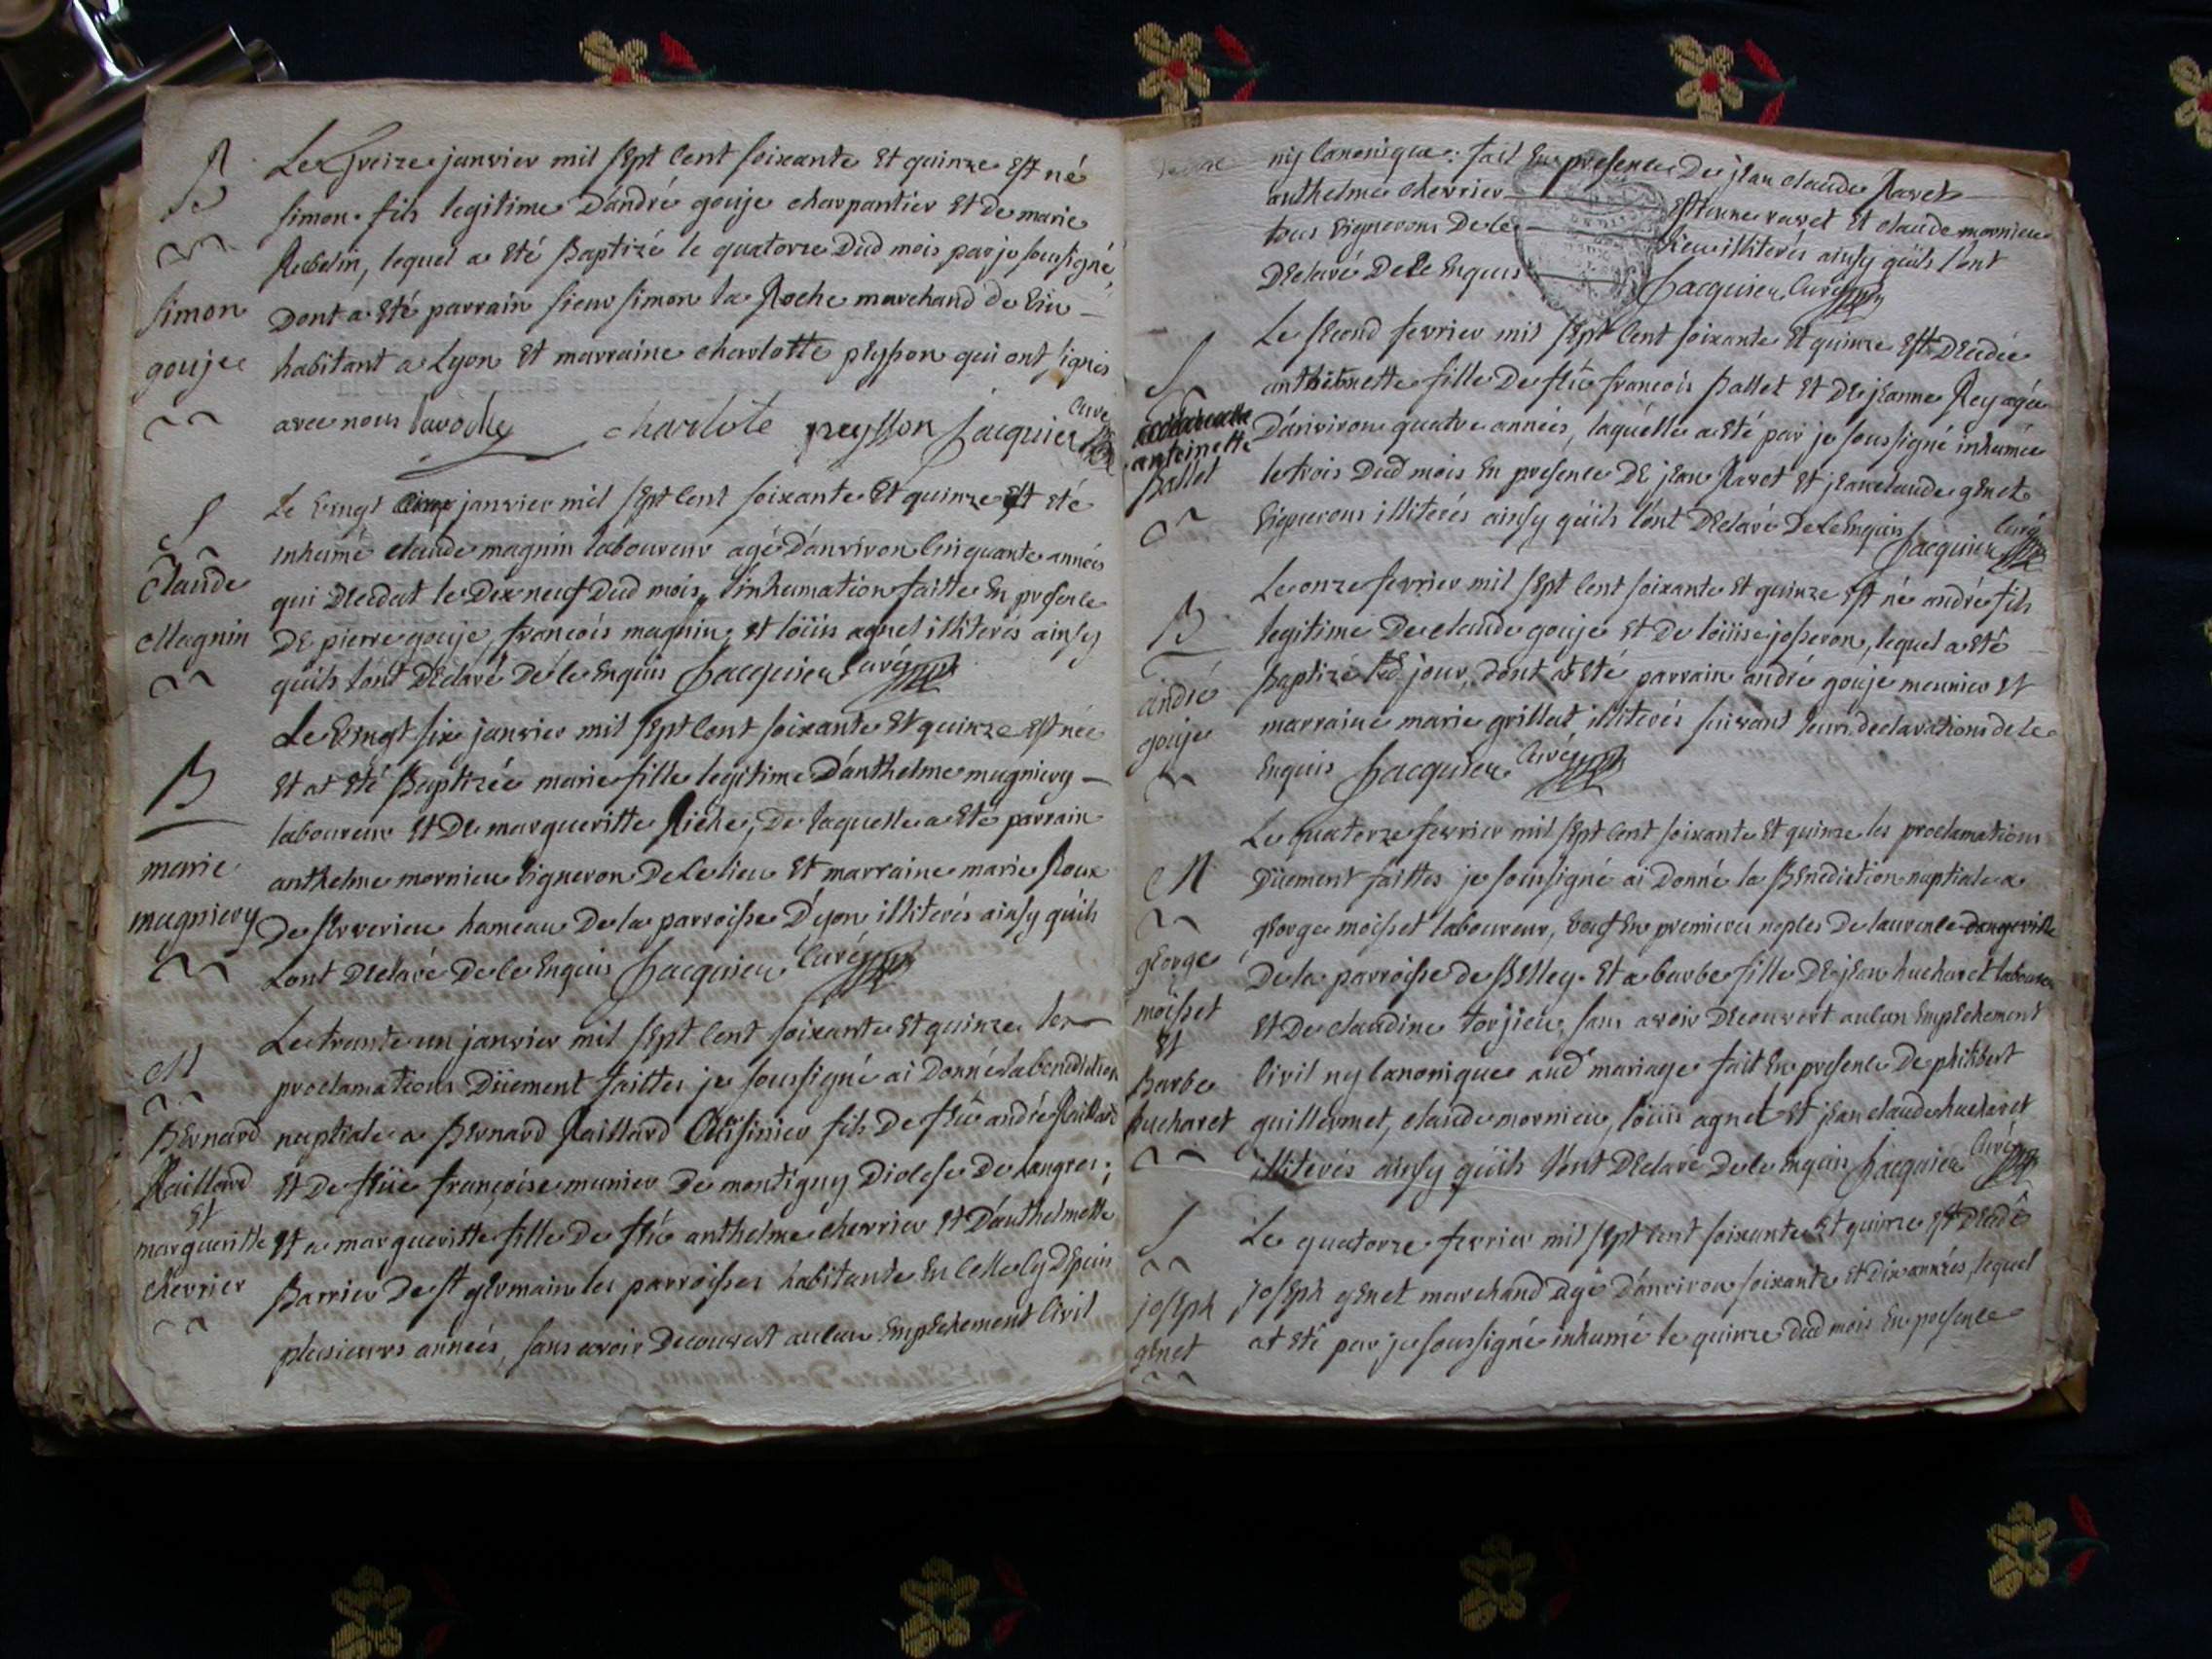 simon
gouje
Le treize janvier mil sept cent soixante et quinze est né
simon fils legitime d'andré gouje charpantier et de marie
Rubelin, lequel a eté Baptizé le quatorze dud mois par je soussigné,
dont a eté parrain sieur simon la Roche marchand de vin
habitant a Lyon et marraine charlotte peysson qui ont signés
avec nous laroche charlote peysson Jacquier curé
S
Claude
Magnin
Le vingt janvier mil sept cent soixante et quinze eté
inhumé claude magnin laboureur agé d'anviron cinquante années
qui deceda le dix neuf dud mois, l'inhumation faitte en presence
de pierre gouje, francois magnin, et loüis agnel illiterés ainsy
qu'ils l'ont déclaré de ce enquis Jacquier curé
B
marie
mugniery
Le vingt six janvier mil sept cent soixante et quinze est née
et at eté Baptizée marie fille legitime d'anthelme mugniery
laboureur et de margueritte Riche, de laquelle a eté parrain
anthelme mornieu vigneron de ce lieu et marraine marie Roux
de hameau de la parroisse d'yon, illiterés ainsy qu'ils
l'ont déclaré de ce enquis Jacquier curé
M
Bernard
Raillard
et
margueritte
chevrier
Le trante un janvier mil sept cent soixante et quinze les
proclamations düement faittes je soussigné ai donné la benediction
nuptiale a Bernard Raillard Cuisinier fils de feu andré Raillard
et de füe françoise munier de montigny diocese de Langres;
et a margueritte fille de feu anthelme chevrier et d'anthelmette
Barrier de st germain les parroisses habitante en celle cy depuis
plusieurs années, sans avoir decouvert aucun empechement civil
ny canonique: fait en presence de jean claude Ravet
anthelme chevrier estienne ravet et claude mornieu
tous vignerons de ce lieu illiterés ainsy qu'ils l'ont
déclaré de ce enquis Jacquier curé
S
antoinette
Ballet
Le second fevrier mil sept cent soixante et quinze est decedée
fille de feu francois Ballet et de jeanne Rey agée
d'anviron quatre années, laquelle a eté par je soussigné inhumée
le trois dud mois en presence de jean Ravet et jean claude genet
vignerons illiterés ainsy qu'ils l'ont déclaré de ce enquis Jacquier curé
B
andré
gouje
Le onze fevrier mil sept cent soixante et quinze est né andré fils
legitime de claude gouje et de loüise josseron, lequel a eté
Baptizé led jour, dont at eté parrain andré gouje meunier et
marraine marie grillat illiterés suivant leurs declarations de ce
enquis Jacquier curé
M
george
moisset
et
Barbe
hucharet
Le quatorze fevrier mil sept cent soixante et quinze les proclamations
düement faittes je soussigné ai donné la Benediction nuptiale a
george moisset laboureur, veuf en premieres nopces de laurence
de la parroisse de Belley. et a barbe fille de jean hucharet laboureur
et de claudine torjieu, sans avoir decouvert aucun empechement
civil ny canonique aud mariage fait en presence de philibert
guillermet, claude mornieu, loüis agnel et jean claude hucharet
illiterés ainsy qu'ils l'ont déclaré de ce enquis Jacquier curé
S
joseph
genet
Le quatorze fevrier mil sept cent soixante et quinze est decedé
joseph genet marchand agé d'anviron soixante et dix années, lequel
at eté par je soussigné inhumé le quinze dud mois en presence